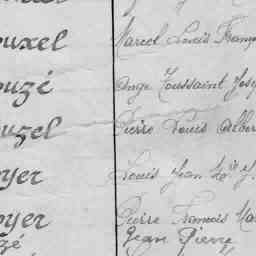 ouxel Marcel Louis Franço
ouzé Ange Toussaint Jose
ouzel Pierre Louis Alber
oyer Louis Jean
oyer Pierre François Ma
zé Jean Pierre